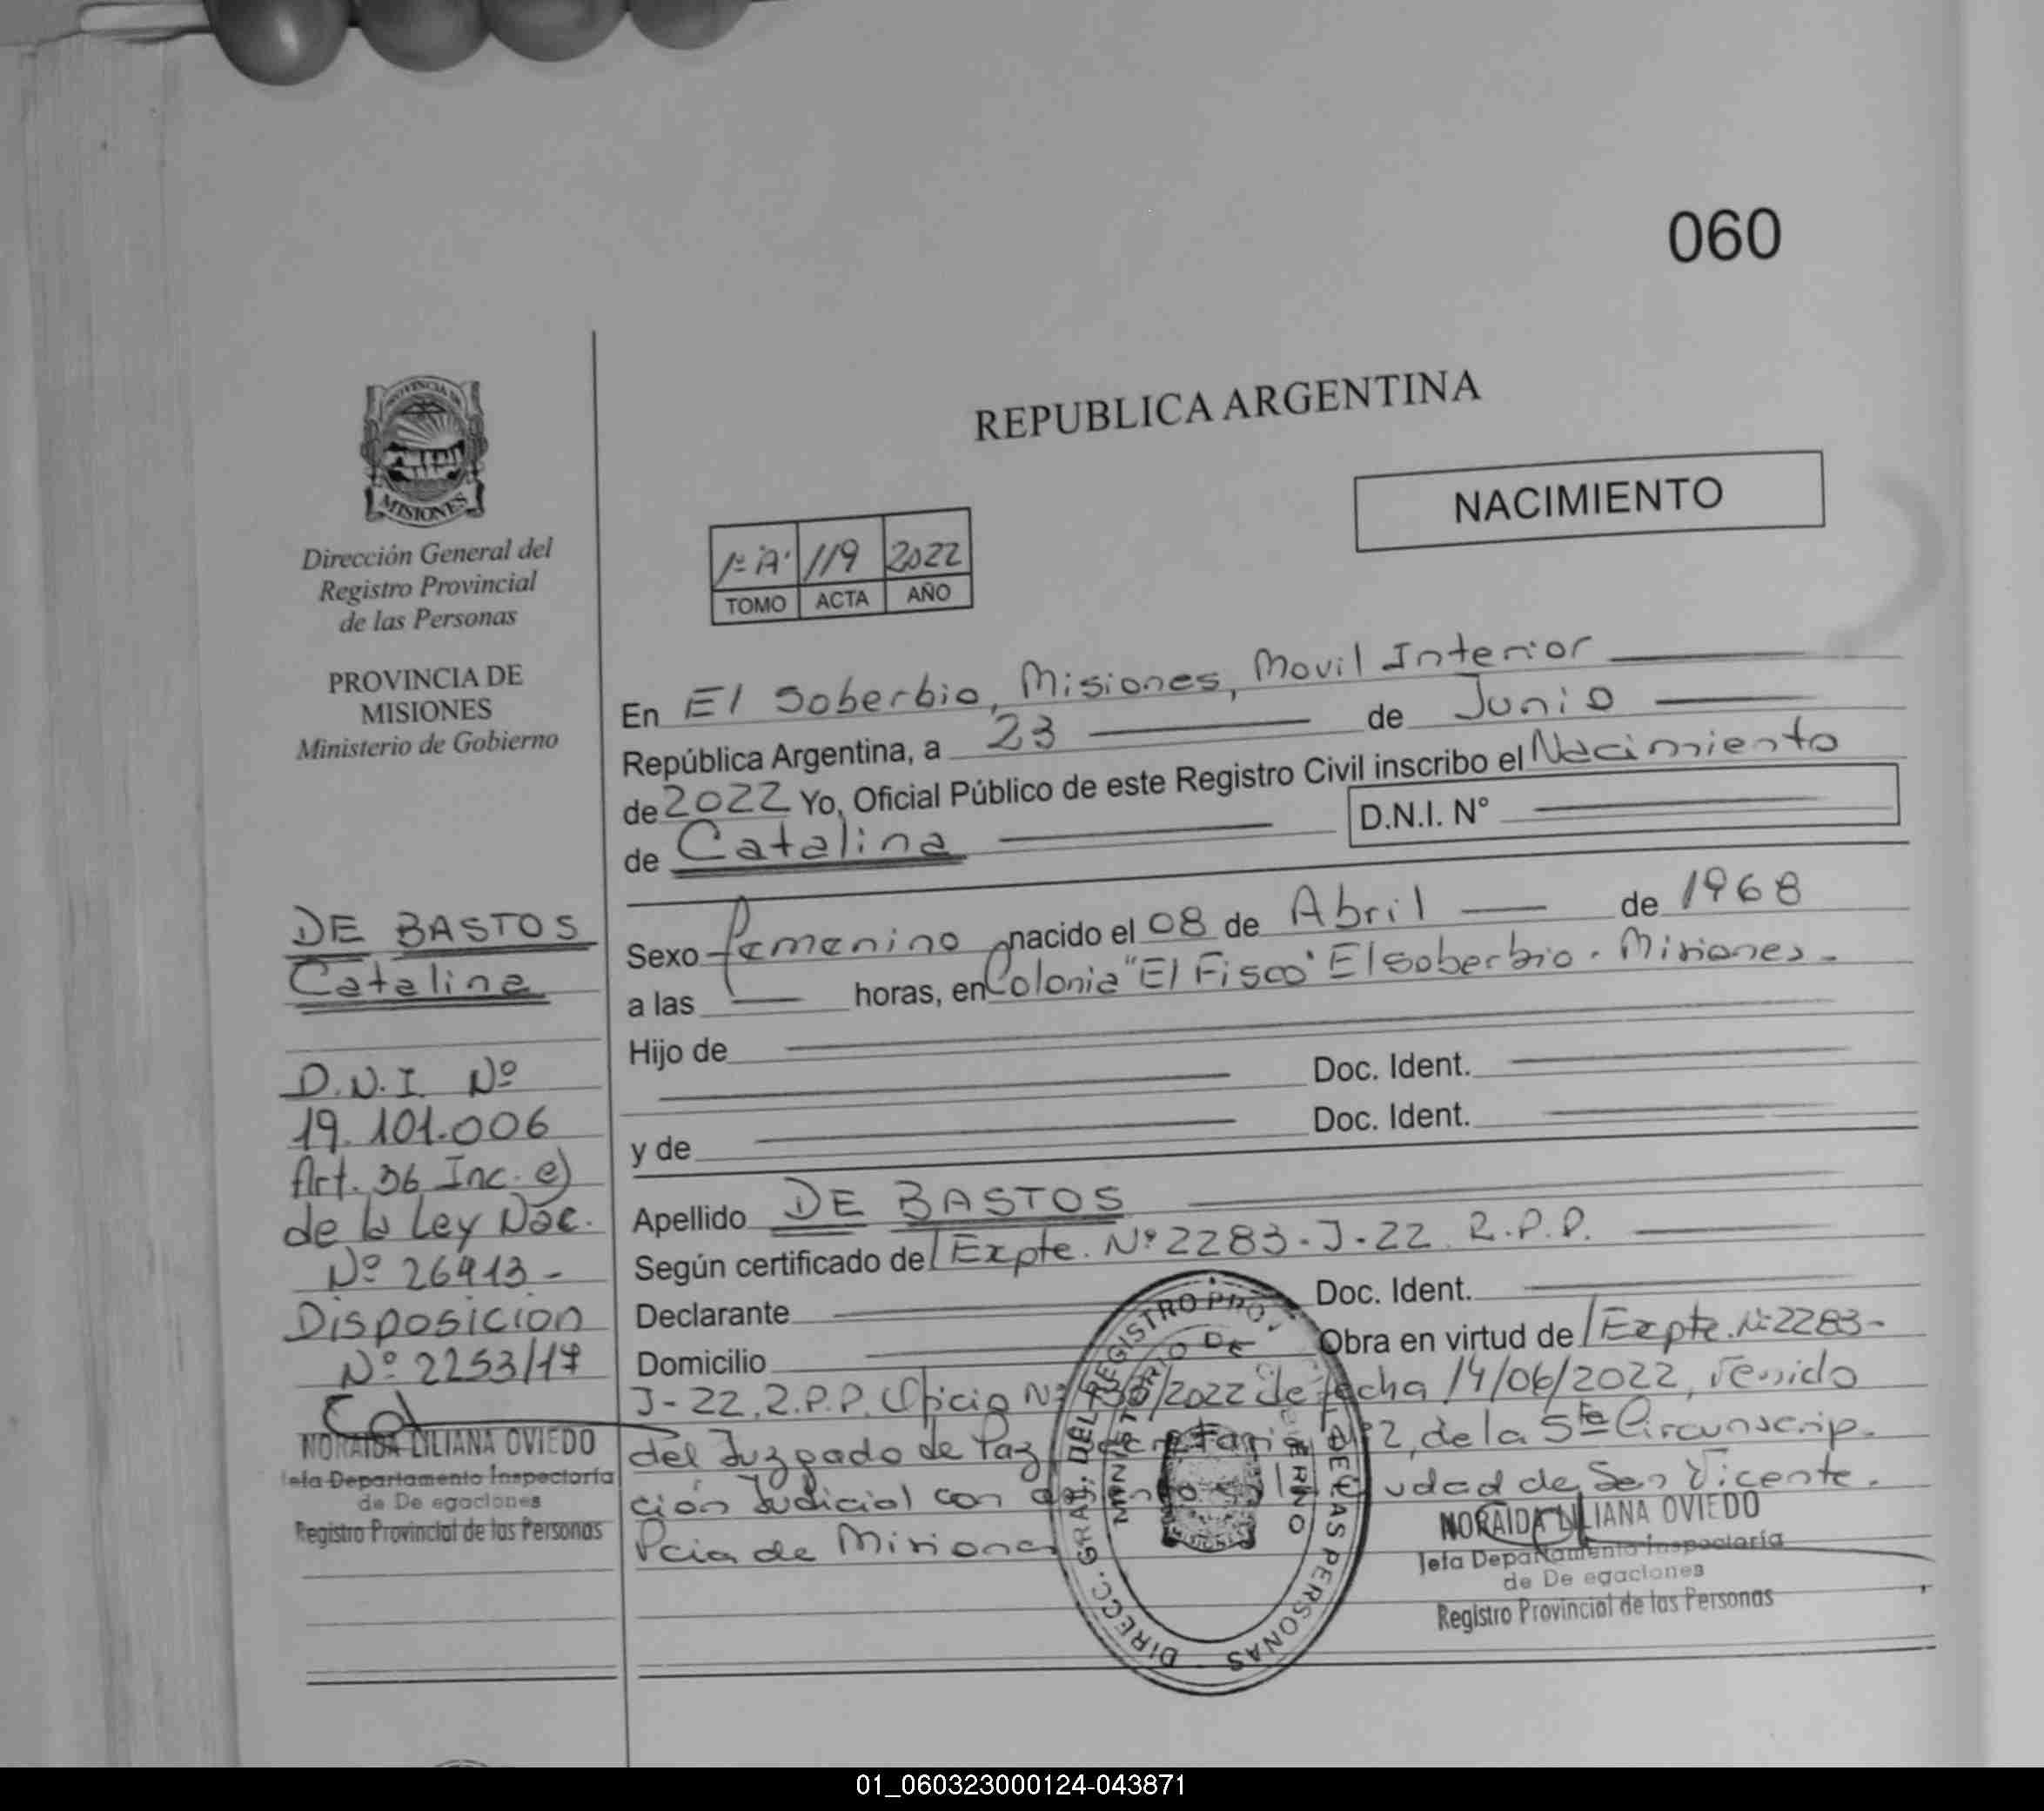 060
PROVINCIA DE
MISIONES
Dirección General del
Registro Provincial
de las Personas
PROVINCIA DE
MISIONES
Ministerio de Gobierno
DE BASTOS
Catalina
D.N.I. Nº
19.101.006
Art. 36 Inc. e)
de la Ley Nac.
Nº 26413-
Disposicion
Nº 2253/17
NORAIDA LILIANA OVIEDO
Jefa Departamento Inspectoría
de De egaciones
Registro Provincial de las Personas
REPUBLICA ARGENTINA
NACIMIENTO
1º "A" 119 2022
TOMO ACTA AÑO
En El Soberbio, Misiones, Movil Interior
República Argentina, a 23 de Junio
de 2022 Yo, Oficial Público de este Registro Civil inscribo el Nacimiento
de Catalina D.N.I. N°
Sexo femenino nacido el 08 de Abril de 1968
a las horas, en Colonia "El Fisco" El Soberbio. Misiones.
Hijo de
Doc. Ident.
y de Doc. Ident.
Apellido DE BASTOS
Según certificado de Expte. Nº 2283-J-22 R.P.P.
Declarante Doc. Ident.
Domicilio Obra en virtud de Expte. Nº 2283-
J-22. R.P.P. Oficio Nº /2022 de fecha 14/06/2022, venido
del Juzgado de Paz, Secretaria Nº 2, de la 5ta Circunscrip-
ción Judicial con asiento en la Ciudad de San Vicente.
Pcia de Misiones
DIRECC. GRAL. DEL REGISTRO PROV. DE LAS PERSONAS
MINISTERIO DE GOBIERNO
NORAIDA LILIANA OVIEDO
Jefa Departamento Inspectoría
de De egaciones
Registro Provincial de las Personas
01_060323000124-043871